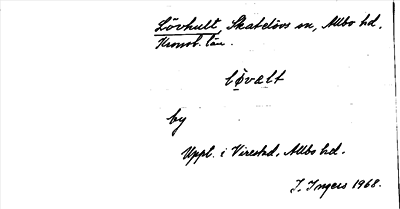 Lövhult, Skatelövs sn, Allbo hd.
Kronob. län.
løvælt
by
Uppl. i Virestad, Allbo hd.
I. Ingers 1968.